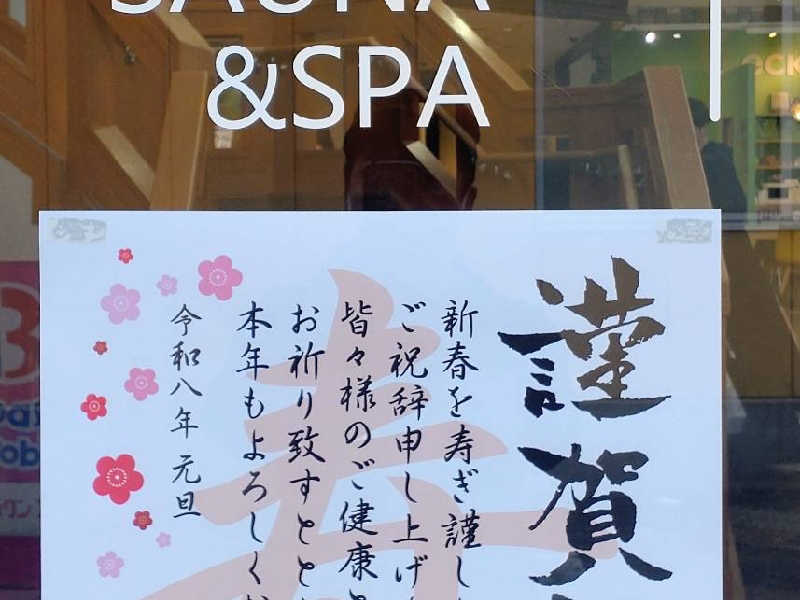 SAUNA
&SPA
謹賀
新春を寿ぎ謹し
ご祝辞申し上げ
皆々様のご健康と
お祈り致すととも
本年もよろしくお
令和八年 元旦